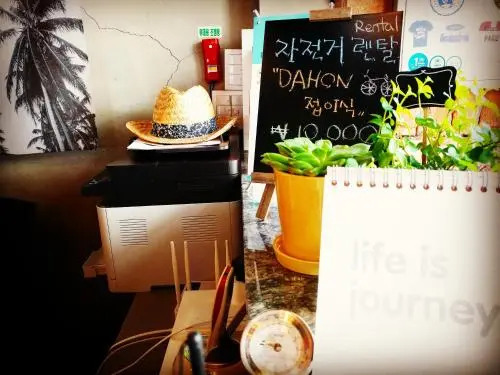 Rental
자전거 렌탈
"DAHON
접이식"
₩ 10,000
life is
journey